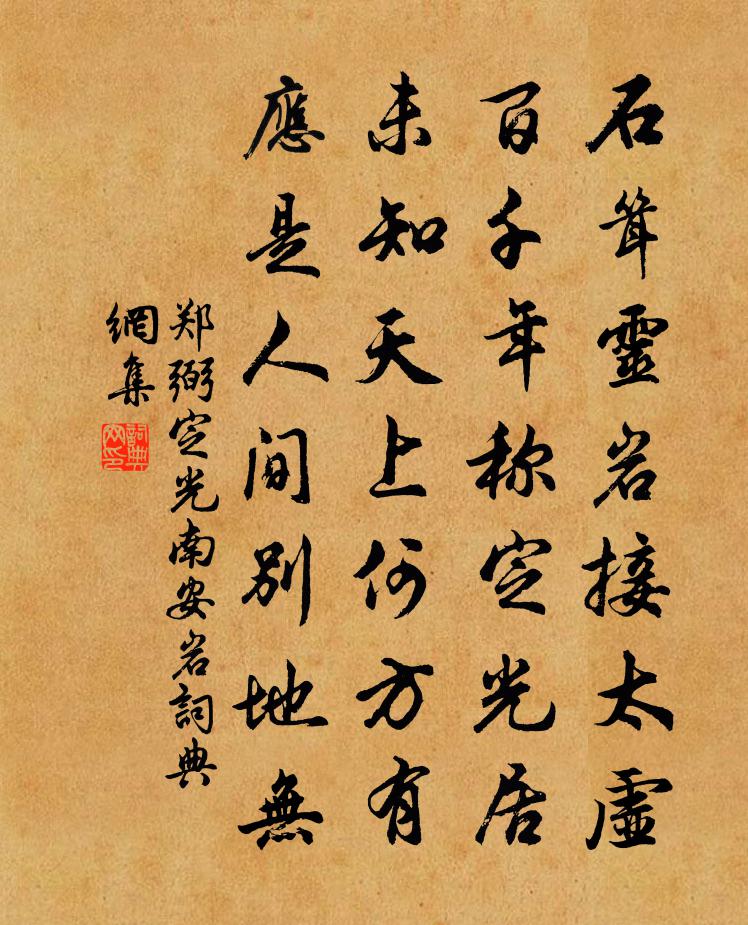 石耸靈岩接太虛
百千年称定光居
未知天上何方有
應是人间别地無
郑弼定光南安岩詞典
網集
詞典
网印